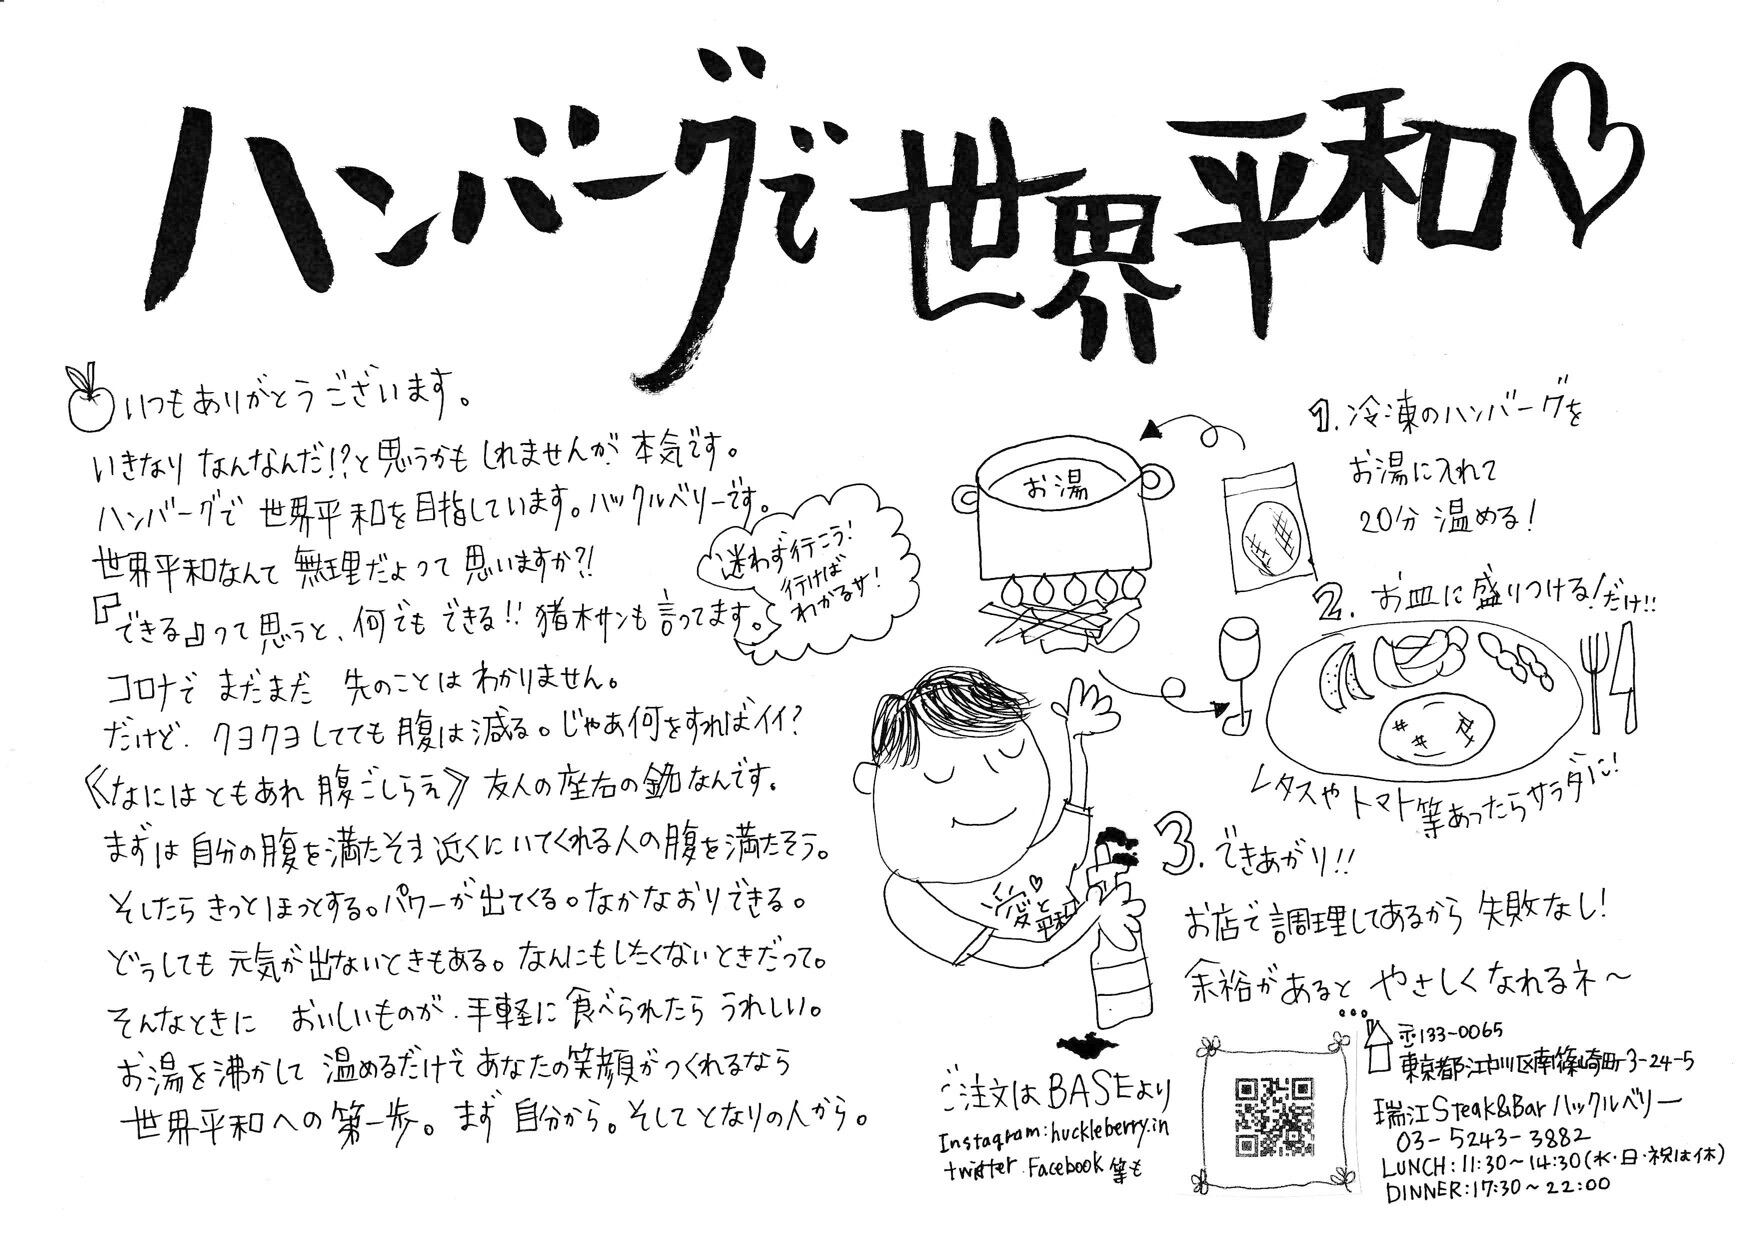 ハンバーグで世界平和♡
いつもありがとうございます。
いきなり なんなんだ!?と思うかもしれませんが、本気です。
ハンバーグで 世界平和を目指しています。ハックルベリーです。
世界平和なんて 無理だよって 思いますか?!
『できる』って思うと、何でもできる!! 猪木サンも言ってます。
コロナで まだまだ 先のことは わかりません。
だけど、クヨクヨしてても腹は減る。じゃあ何をすればイイ?
《なにはともあれ 腹ごしらえ》 友人の座右の銘なんです。
まずは 自分の腹を満たそう 近くにいてくれる人の腹を満たそう。
そしたら きっとほっとする。パワーが出てくる。なかなおりできる。
どうしても 元気が出ないときもある。なんにもしたくないときだって。
そんなときに おいしいものが、手軽に食べられたら うれしい。
お湯を沸かして 温めるだけで あなたの笑顔がつくれるなら
世界平和への第一歩。まず 自分から。そして となりの人から。
迷わず行こう!
行けば
わかるサ!
お湯
1. 冷凍のハンバーグを
お湯に入れて
20分 温める!
2. お皿に盛りつける!だけ!!
レタスや トマト等あったらサラダに!
3. できあがり!!
お店で調理してあるから 失敗なし!
余裕があると やさしくなれるネ〜
愛と
平和
ご注文はBASEより
Instagram:huckleberry.in
twitter Facebook 等も
〒133-0065
東京都江戸川区南篠崎町3-24-5
瑞江Steak&Bar ハックルベリー
03-5243-3882
LUNCH:11:30〜14:30(水・日・祝は休)
DINNER:17:30〜22:00